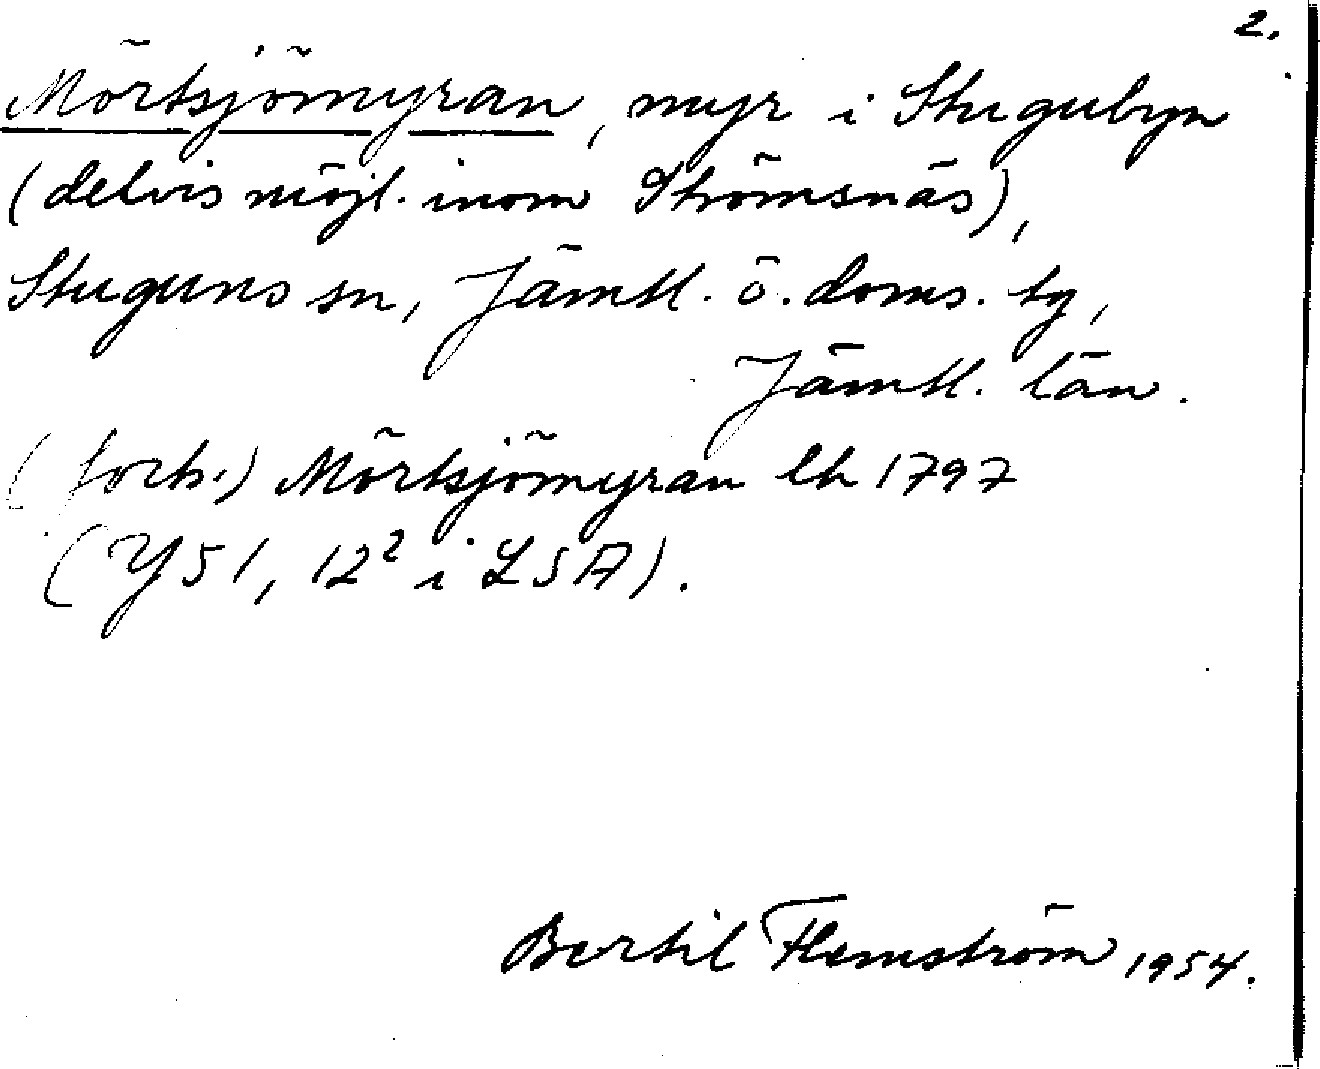 2.
Mörtsjömyran, myr i Stugubyn
(delvis möjl. inom Strömsnäs),
Stuguns sn, Jämtl. ö. doms. tg,
Jämtl. län.
(forts.) Mörtsjömyran lh 1797
(Y51, 12² i LSA).
Bertil Flemström 1954.